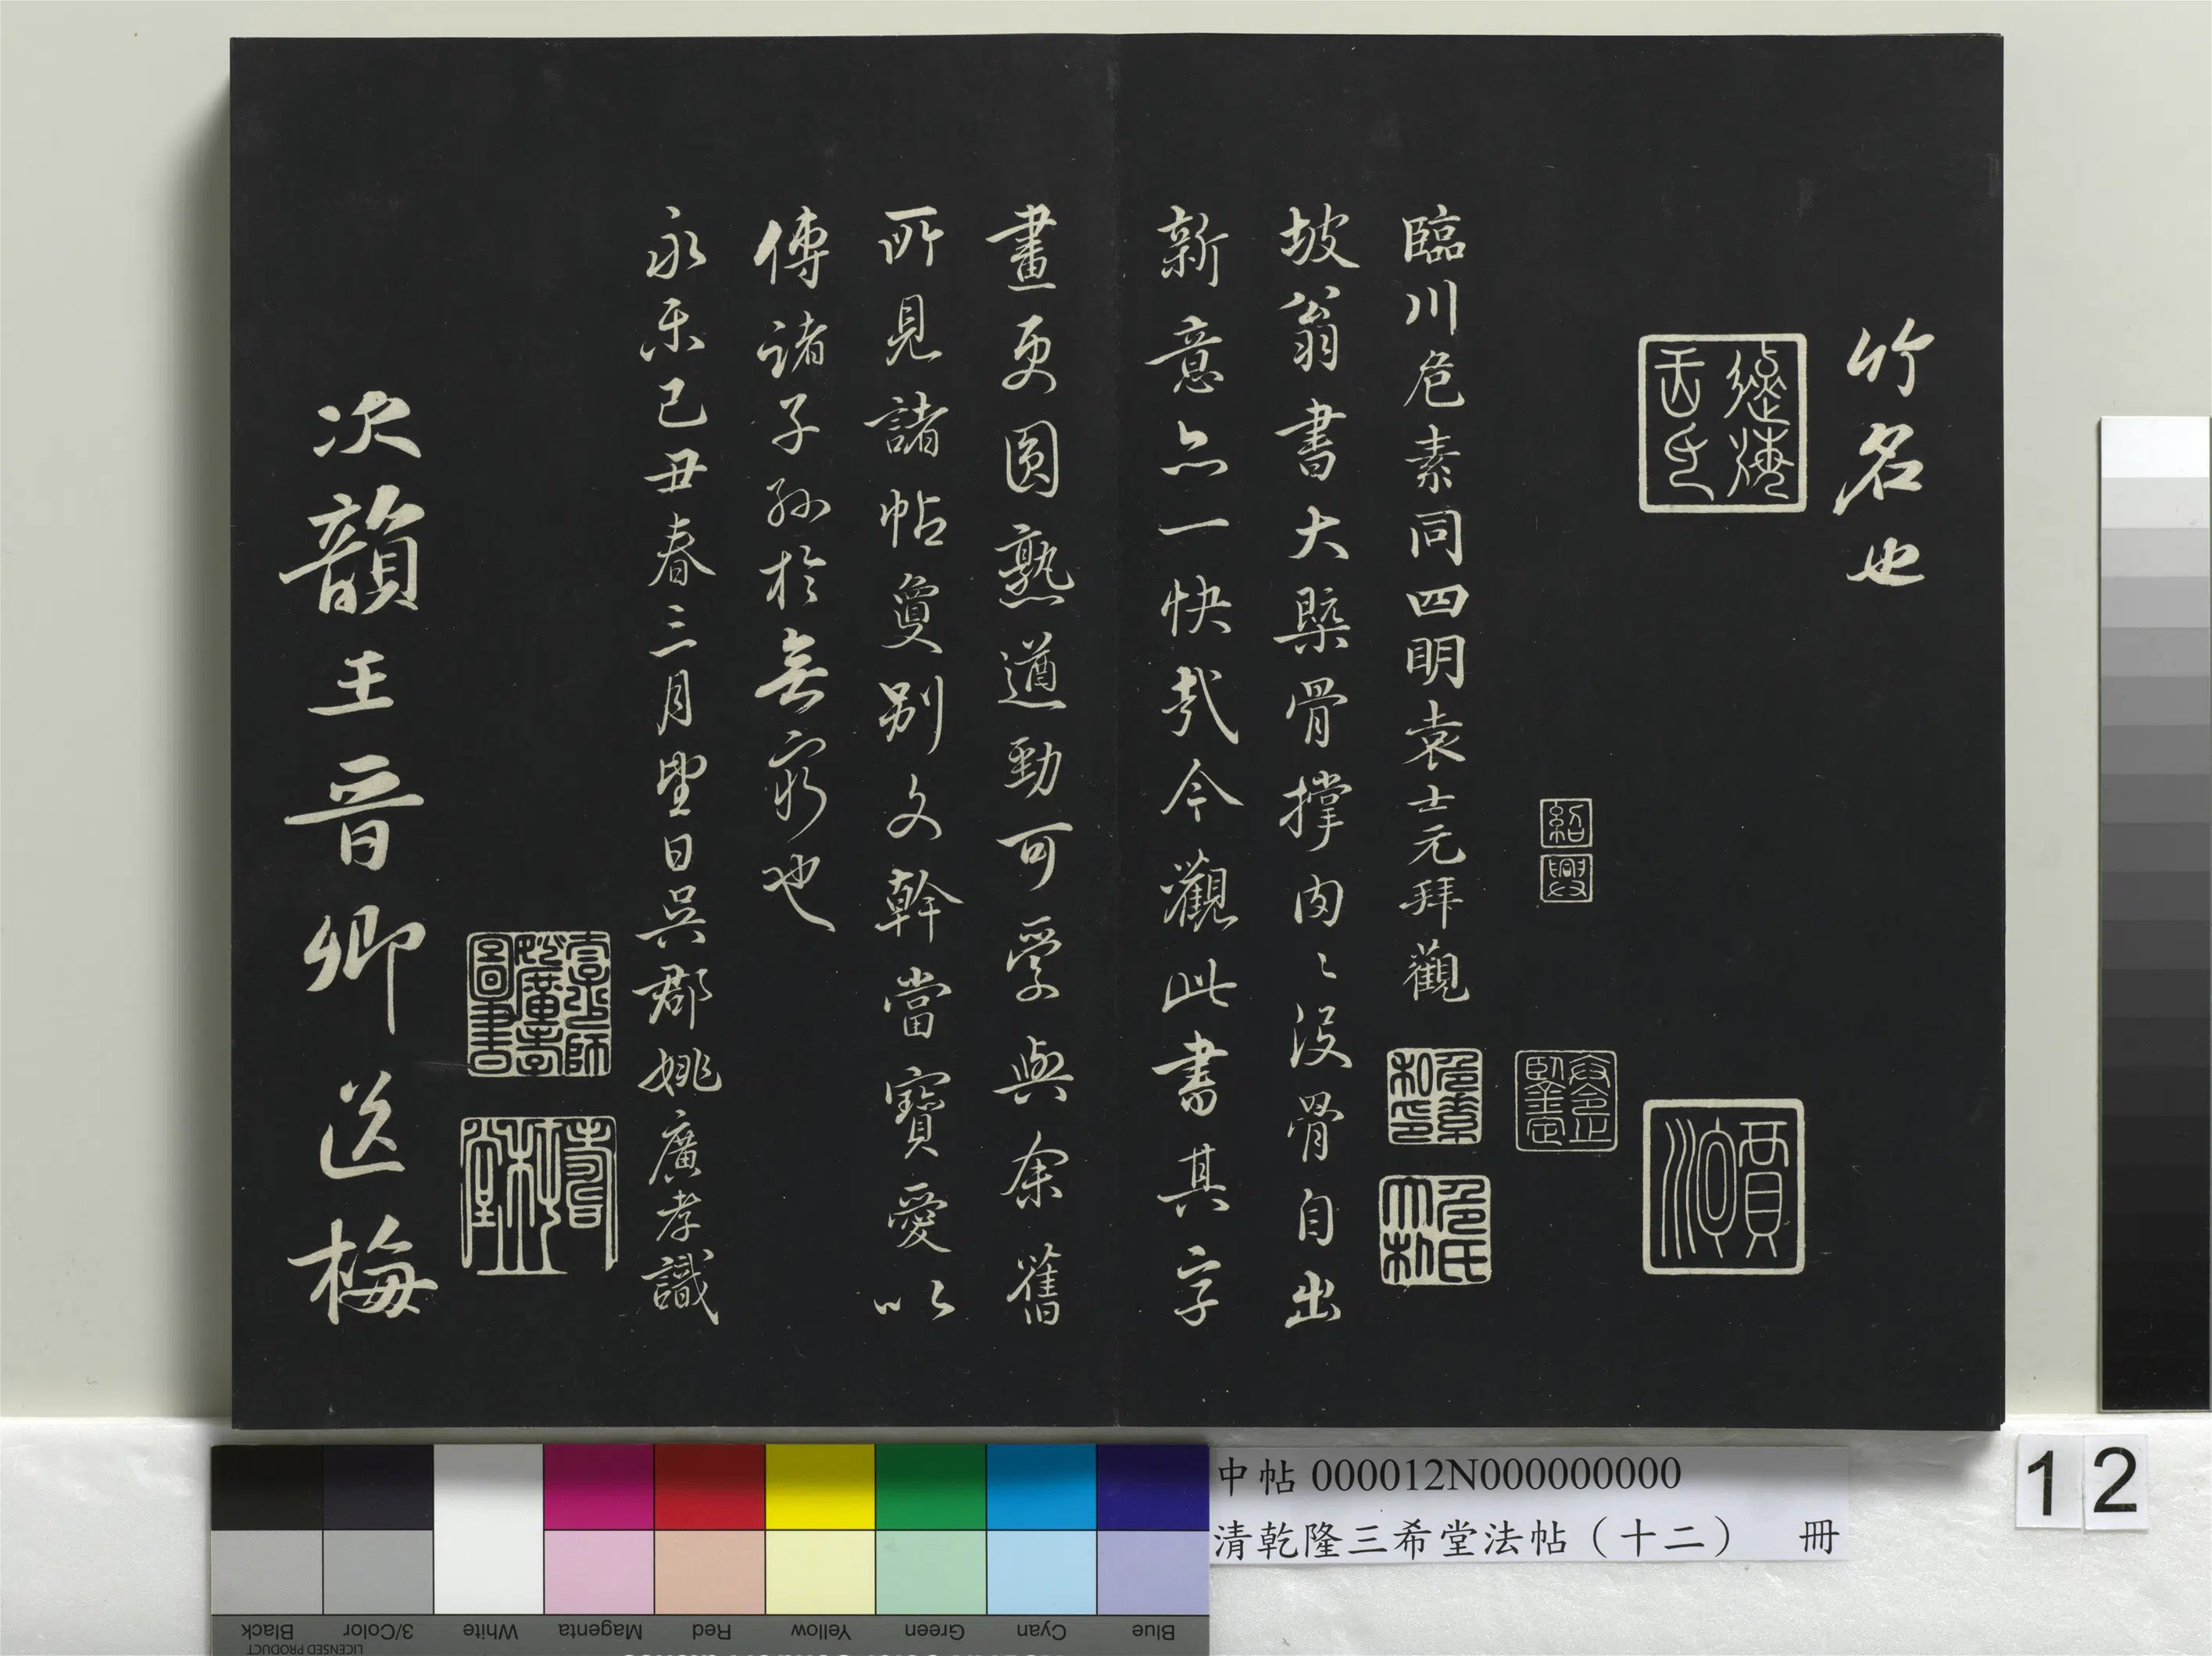 竹名也
紹
興
臨川危素同四明袁士元拜觀
危素
危氏
坡翁書大槩骨撑肉〻没骨自出
新意亦一快哉今觀此書其字
畫更圓熟遒勁可學與余舊
所見諸帖敻别文幹當寶愛以
傳諸子孫於無窮也
永樂己丑春三月望日吳郡姚廣孝識
圖書
次韻王晉卿送梅
中帖 000012N000000000
清乾隆三希堂法帖（十二） 冊
12
Black
3/Color
White
Magenta
Red
Yellow
Green
Cyan
Blue
LICENSED PRODUCT